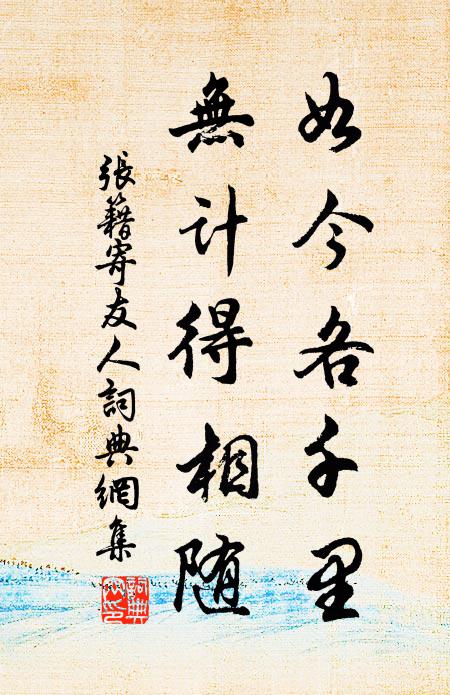 如今各千里
無计得相随
張籍寄友人詞典網集